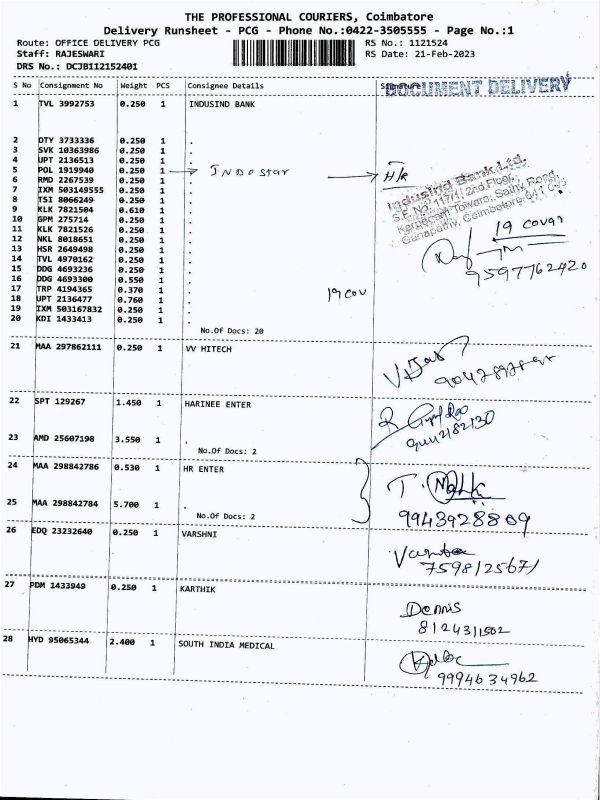 THE PROFESSIONAL COURIERS, Coimbatore
Delivery Runsheet - PCG - Phone No.:0422-3505555 - Page No.:1
Route: OFFICE DELIVERY PCG
RS No.: 1121524
Staff: RAJESWARI
RS Date: 21-Feb-2023
DRS No.: DCJB112152401
S No Consignment No Weight PCS Consignee Details Signature
DOCUMENT DELIVERY
1 TVL 3992753 0.250 1 INDUSIND BANK
2 DTY 3733336 0.250 1 .
3 SVK 10363986 0.250 1 .
4 UPT 2136513 0.250 1 .
5 POL 1919940 0.250 1 . INDOStar H/R
6 RMD 2267539 0.250 1 .
7 IXM 503149555 0.250 1 .
8 TSI 8066249 0.250 1 .
9 KLK 7821504 0.610 1 .
10 GPM 275714 0.250 1 .
11 KLK 7821526 0.250 1 .
12 NKL 8018651 0.250 1 .
13 HSR 2649498 0.250 1 .
14 TVL 4970162 0.250 1 .
15 DDG 4693236 0.250 1 .
16 DDG 4693300 0.550 1 .
17 TRP 4194365 0.370 1 .
18 UPT 2136477 0.760 1 .
19 IXM 503167832 0.250 1 .
20 KDI 1433413 0.250 1 .
Indusind Bank Ltd.
S.F. No. 117/1, 2nd Floor,
Karpagam Towers, Sathy Road,
Ganapathy, Coimbatore-641
19 cover
9597762420
19 cov
No.Of Docs: 20
21 MAA 297862111 0.250 1 VV HITECH
22 SPT 129267 1.450 1 HARINEE ENTER
23 AMD 25607198 3.550 1 .
No.Of Docs: 2
24 MAA 298842786 0.530 1 HR ENTER
25 MAA 298842784 5.700 1 .
No.Of Docs: 2
9943928809
26 EDQ 23232640 0.250 1 VARSHNI
7598125671
27 PDM 1433949 0.250 1 KARTHIK
Dennis
8124311502
28 HYD 95065344 2.400 1 SOUTH INDIA MEDICAL
9994634962